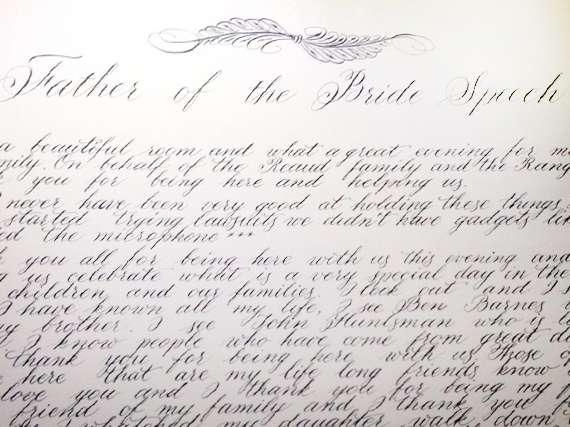 Father of the Bride Speech
a beautiful room and what a great evening for m
mily. On behalf of the Reaud family and the Rang
you for being here and helping us.
never have been very good at holding these things.
started trying lawsuits we didn't have gadgets lik
ed the microphone ***
k you all for being here with us this evening and
g us celebrate what is a very special day in the
children and our families. I look out and I s
I have known all my life, I see Ben Barnes
my brother. I see John Huntsman who is li
I know people who have come from great di
thank you for being here with us. Those o
here that are my life long friends know
love you and I thank you for being my f
friend of my family and I thank you
I watched my daughter walk down